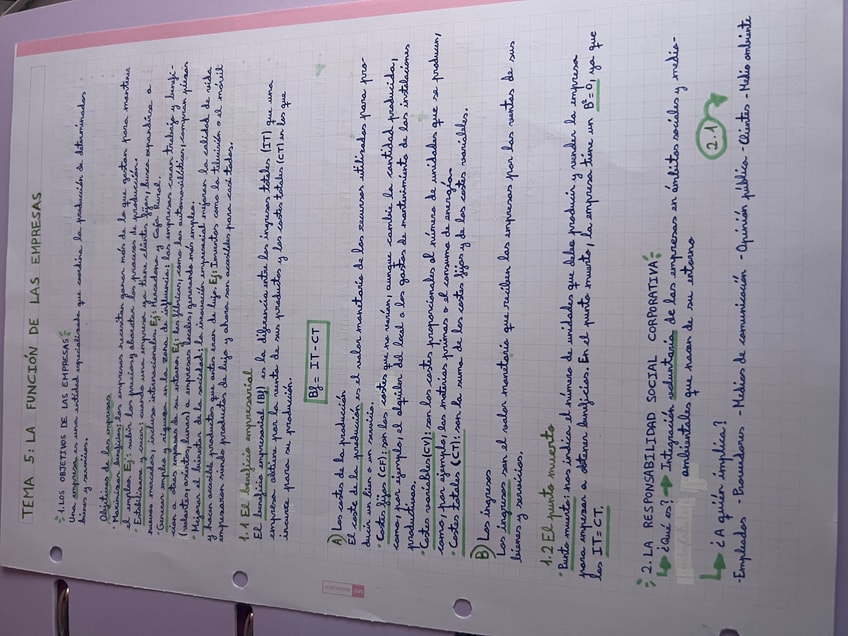 TEMA 5: LA FUNCIÓN DE LAS EMPRESAS
1. LOS OBJETIVOS DE LAS EMPRESAS:
Una empresa es una entidad especializada que coordina la producción de determinados
bienes y servicios.
Objetivos de las empresas
· Maximizar beneficios: las empresas necesitan ganar más de lo que gastan para mantener
el empleo. Ej: subir los precios y abaratar los procesos de producción.
· Establecerse y crecer: cuando una empresa ya tiene clientes fijos, busca expandirse a
nuevos mercados, incluso internacionales. Ej: Mercadona y Caja Rural.
· Generar empleo y riqueza en la zona de influencia: las empresas crean trabajo y benefi-
cian a otras empresas de su entorno. Ej: las fábricas, como las automovilísticas, compran piezas
(volantes, asientos, lunas) a empresas locales, generando más empleo.
· Mejorar el bienestar de la sociedad: la innovación empresarial mejora la calidad de vida
y hacen accesible productos que antes eran de lujo. Ej: Inventos como la televisión o el móvil
empezaron siendo productos de lujo y ahora son accesibles para casi todos.
1.1 El beneficio empresarial
El beneficio empresarial (Bf) es la diferencia entre los ingresos totales (IT) que una
empresa obtiene por la venta de sus productos y los costes totales (CT) en los que
incurre para su producción.
Bf = IT - CT
A) Los costes de la producción
El coste de la producción es el valor monetario de los recursos utilizados para pro-
ducir un bien o un servicio.
· Costes fijos (CF): son los costes que no varían, aunque cambie la cantidad producida,
como, por ejemplo, el alquiler del local o los gastos de mantenimiento de las instalaciones
productivas.
· Costes variables (CV): son los costes proporcionales al número de unidades que se producen,
como, por ejemplo, las materias primas o el consumo de energía.
· Costes totales (CT): son la suma de los costes fijos y de los costes variables.
B) Los ingresos
Los ingresos son el valor monetario que reciben las empresas por las ventas de sus
bienes y servicios.
1.2 El punto muerto
· Punto muerto: nos indica el número de unidades que debe producir y vender la empresa
para empezar a obtener beneficios. En el punto muerto, la empresa tiene un Bº = 0, ya que
los IT = CT.
2. LA RESPONSABILIDAD SOCIAL CORPORATIVA:
¿Qué es? → Integración voluntaria de las empresas en ámbitos sociales y medio-
ambientales que nacen de su entorno
¿A quién implica? 2.1
- Empleados - Proveedores - Medios de comunicación - Opinión pública - Clientes - Medio ambiente